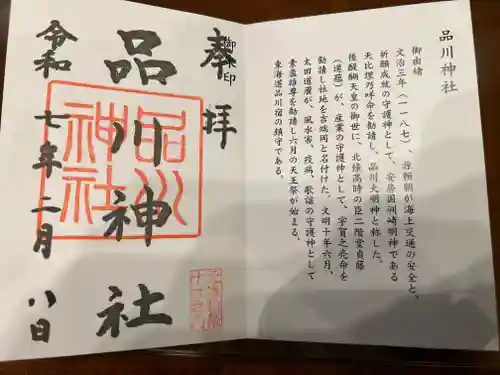 品川神社
御由緒
文治三年(一一八七)、源頼朝が海上交通の安全と、
祈願成就の守護神として、安房国洲崎明神である
天比理乃咩命を勧請し、品川大明神と称した。
後醍醐天皇の御世に、北條高時の臣二階堂貞藤
(道蘊)が、産業の守護神として、宇賀之売命を
勧請し社地を吉端岡と名付けた。文明十年六月、
太田道灌が、風水害、疫病、歌謡の守護神として
素盞雄尊を勧請し六月の天王祭が始まる。
東海道品川宿の鎮守である。
奉拝
御朱印
品川神社
品川
神社
令和七年二月八日